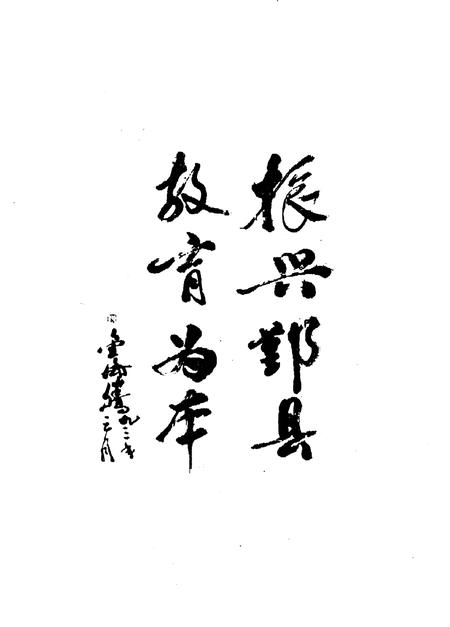 振兴鄞县
教育为本
九二年
三月